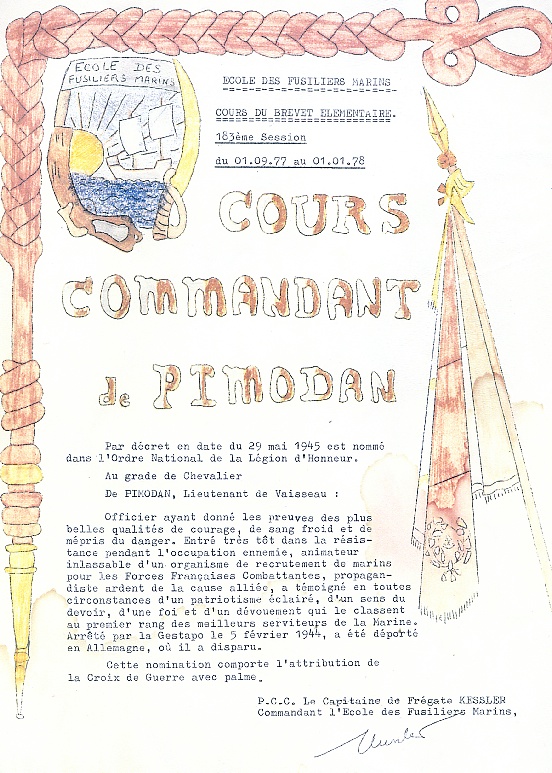 ECOLE DES
FUSILIERS MARINS
ECOLE DES FUSILIERS MARINS
COURS DU BREVET ELEMENTAIRE.
183ème Session
du 01.09.77 au 01.01.78
COURS
COMMANDANT
de PIMODAN
Par décret en date du 29 mai 1945 est nommé
dans l'Ordre National de la Légion d'Honneur.
Au grade de Chevalier
De PIMODAN, Lieutenant de Vaisseau :
Officier ayant donné les preuves des plus
belles qualités de courage, de sang froid et de
mépris du danger. Entré très tôt dans la résis-
tance pendant l'occupation ennemie, animateur
inlassable d'un organisme de recrutement de marins
pour les Forces Françaises Combattantes, propagan-
diste ardent de la cause alliée, a témoigné en toutes
circonstances d'un patriotisme éclairé, d'un sens du
devoir, d'une foi et d'un dévouement qui le classent
au premier rang des meilleurs serviteurs de la Marine.
Arrêté par la Gestapo le 5 février 1944, a été déporté
en Allemagne, où il a disparu.
Cette nomination comporte l'attribution de
la Croix de Guerre avec palme.
P.C.C. Le Capitaine de Frégate KESSLER
Commandant l'Ecole des Fusiliers Marins,